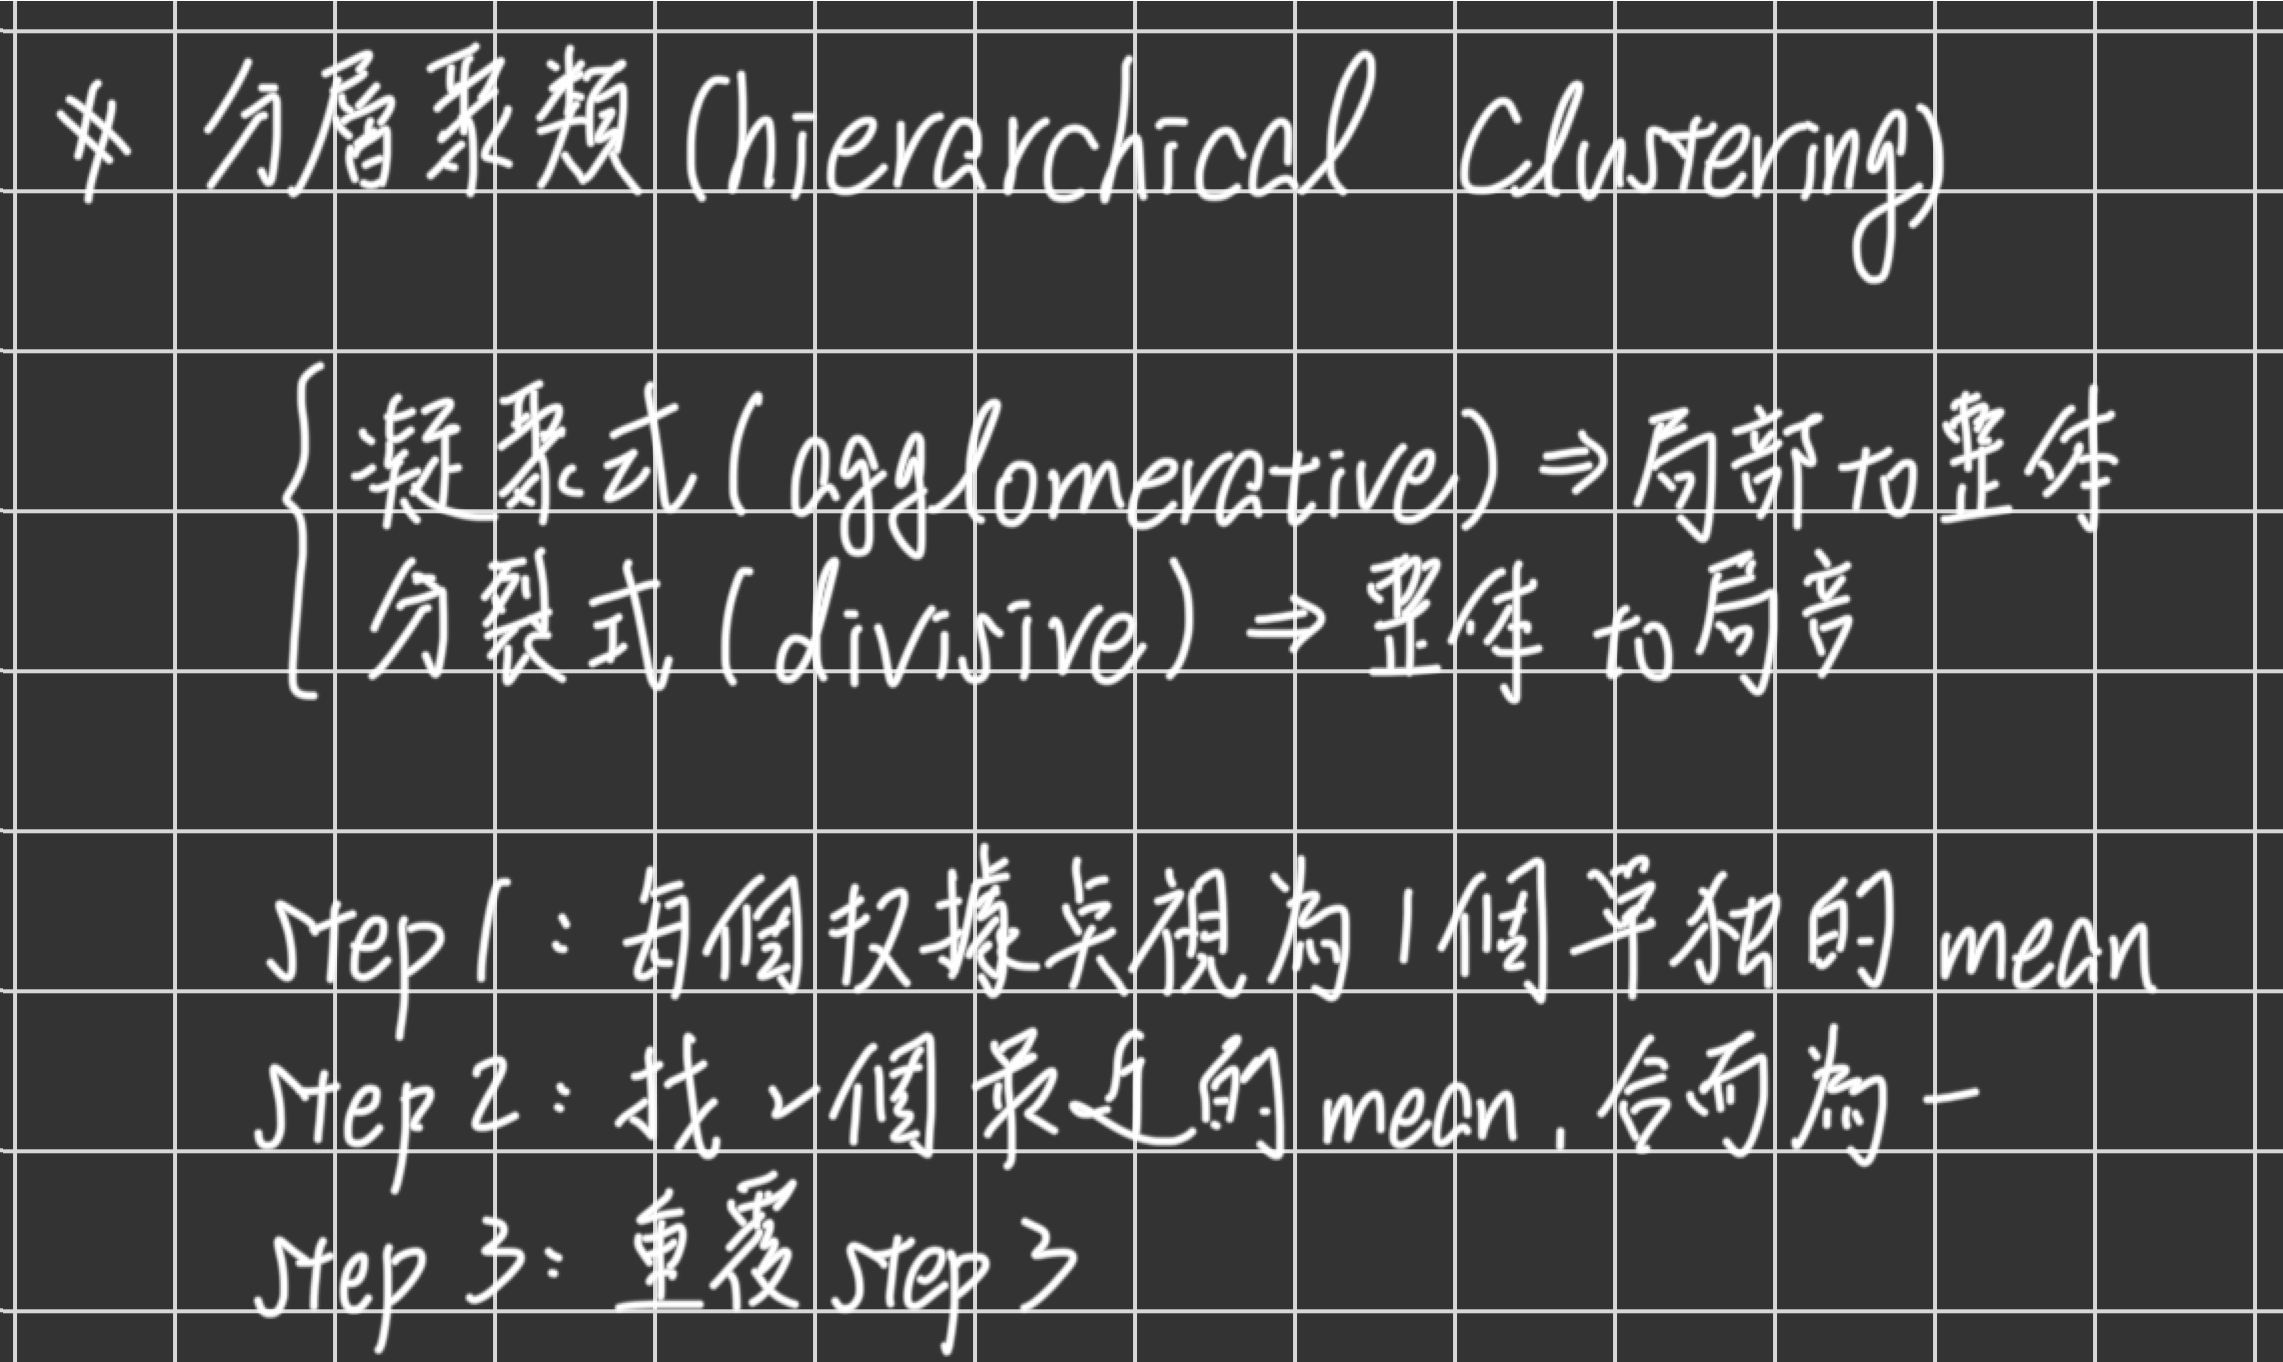 * 分層聚類 (hierarchical Clustering)
凝聚式 (agglomerative) ⇒ 局部 to 整体
分裂式 (divisive) ⇒ 整体 to 局音
step 1 : 每個权據点視為1個單独的 mean
step 2 : 找2個最近的 mean, 合而為一
step 3 : 重覆 step 3